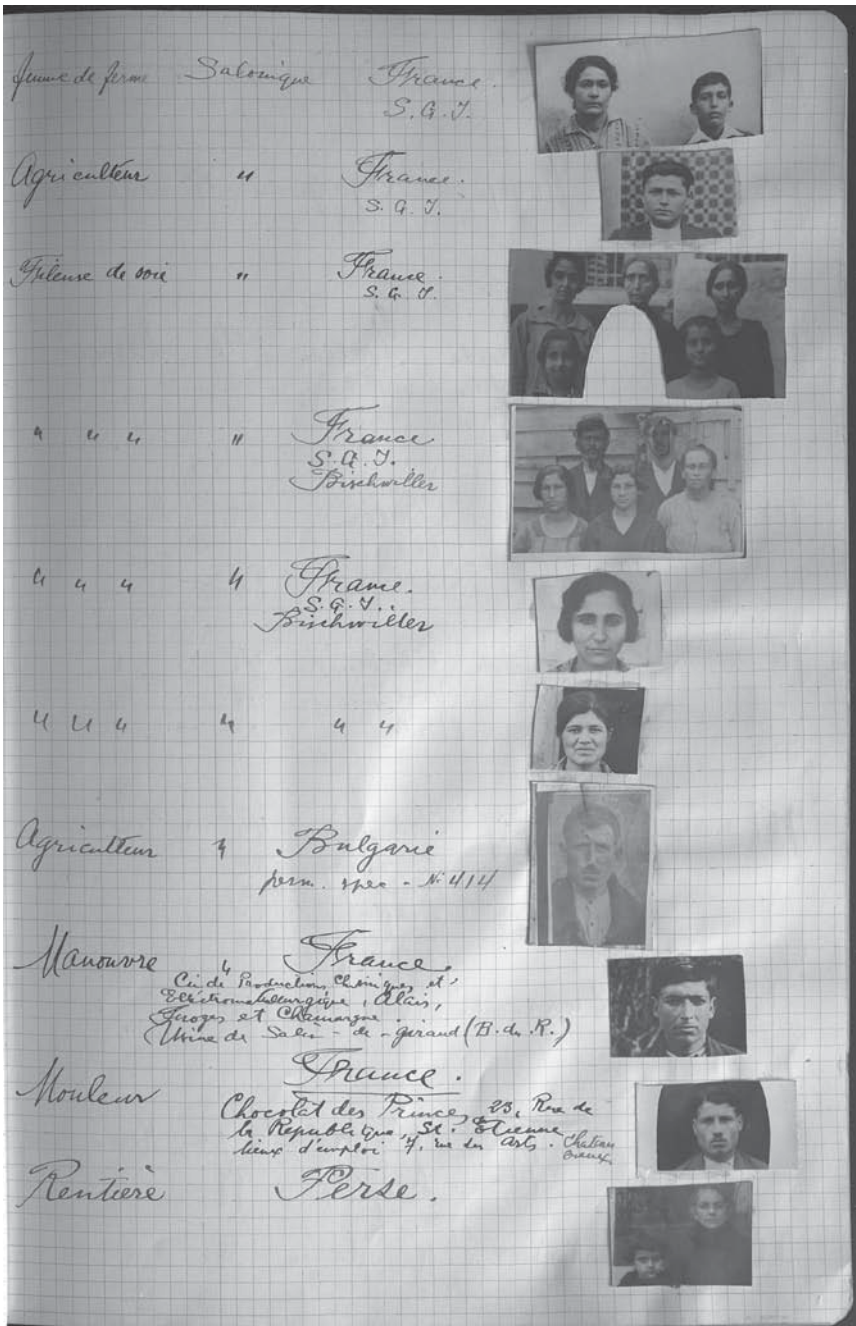 femme de ferme Salonique France.
S. G. I.
Agriculteur " France.
S. G. I.
Fileuse de soie " France.
S. G. I.
" " " " France
S. G. I.
Bischwiller
" " " " France.
S. G. I.
Bischwiller
" " " " " "
Agriculteur " Bulgarie
perm. spec - № 414
Manouvre " France.
Cie de Productions Chimiques et
Electrometallurgique, Alais,
Froges et Chamargne.
Usine de Salin-de-giraud (B. du R.)
France.
Mouleur
Chocolat des Princes, 23, Rue de
la Republique, St. Etienne
lieux d'emploi 7, rue des Arts. Chateau
Rentière Perse.